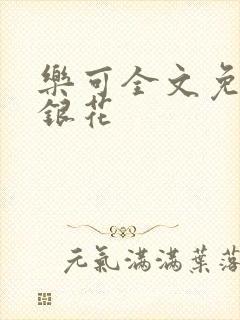 樂可全文免
銀花
元氣滿滿葉落